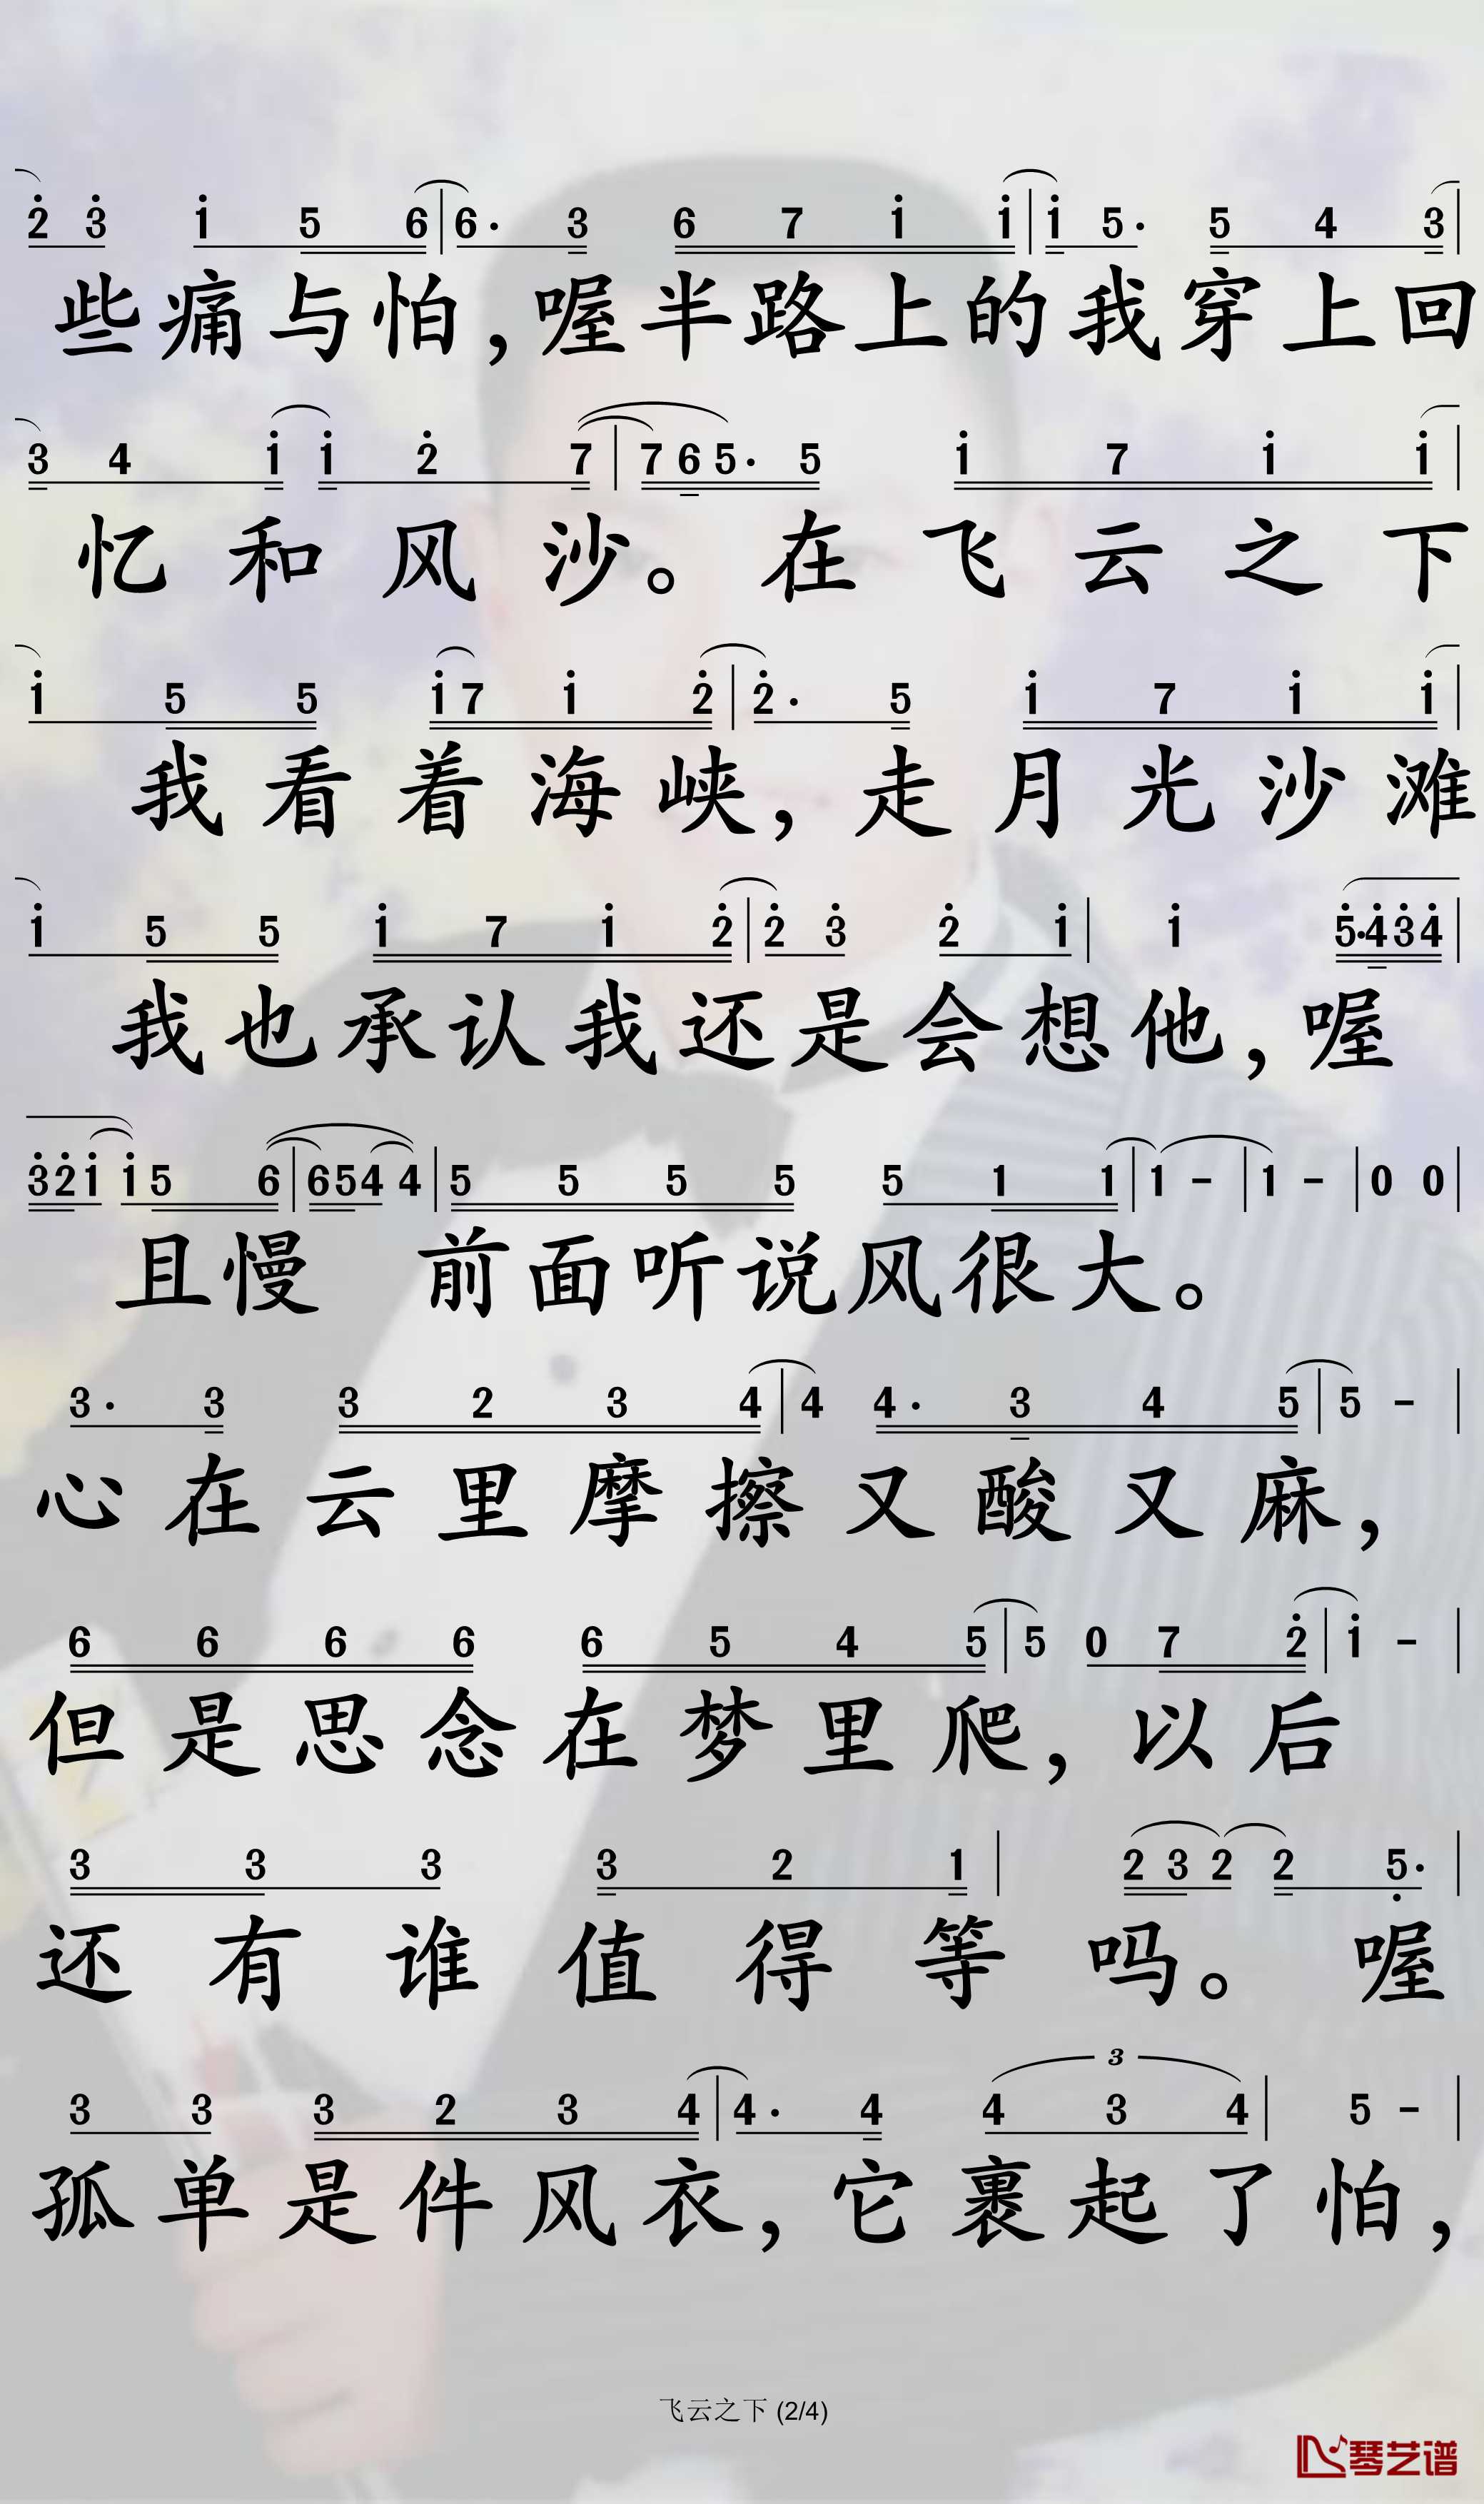 2 3 1 5 6 | 6· 3 6 7 1 1 | 1 5· 5 4 3 |
些痛与怕,喔半路上的我穿上回
3 4 1 1 2 7 | 7 6 5· 5 1 7 1 1 |
忆和风沙。在飞云之下
1 5 5 1 7 1 2 | 2· 5 1 7 1 1 |
我看着海峡,走月光沙滩
1 5 5 1 7 1 2 | 2 3 2 1 | 1 5·4 3 4 |
我也承认我还是会想他,喔
3 2 1 1 5 6 | 6 5 4 4 | 5 5 5 5 5 1 1 | 1 - | 1 - | 0 0 |
且慢 前面听说风很大。
3· 3 3 2 3 4 | 4 4· 3 4 5 | 5 - |
心在云里摩擦又酸又麻,
6 6 6 6 6 5 4 5 | 5 0 7 2 | 1 - |
但是思念在梦里爬,以后
3 3 3 3 2 1 | 2 3 2 2 5· |
还有谁值得等吗。喔
3
3 3 3 2 3 4 | 4· 4 4 3 4 | 5 - |
孤单是件风衣,它裹起了怕,
飞云之下 (2/4)
琴艺谱